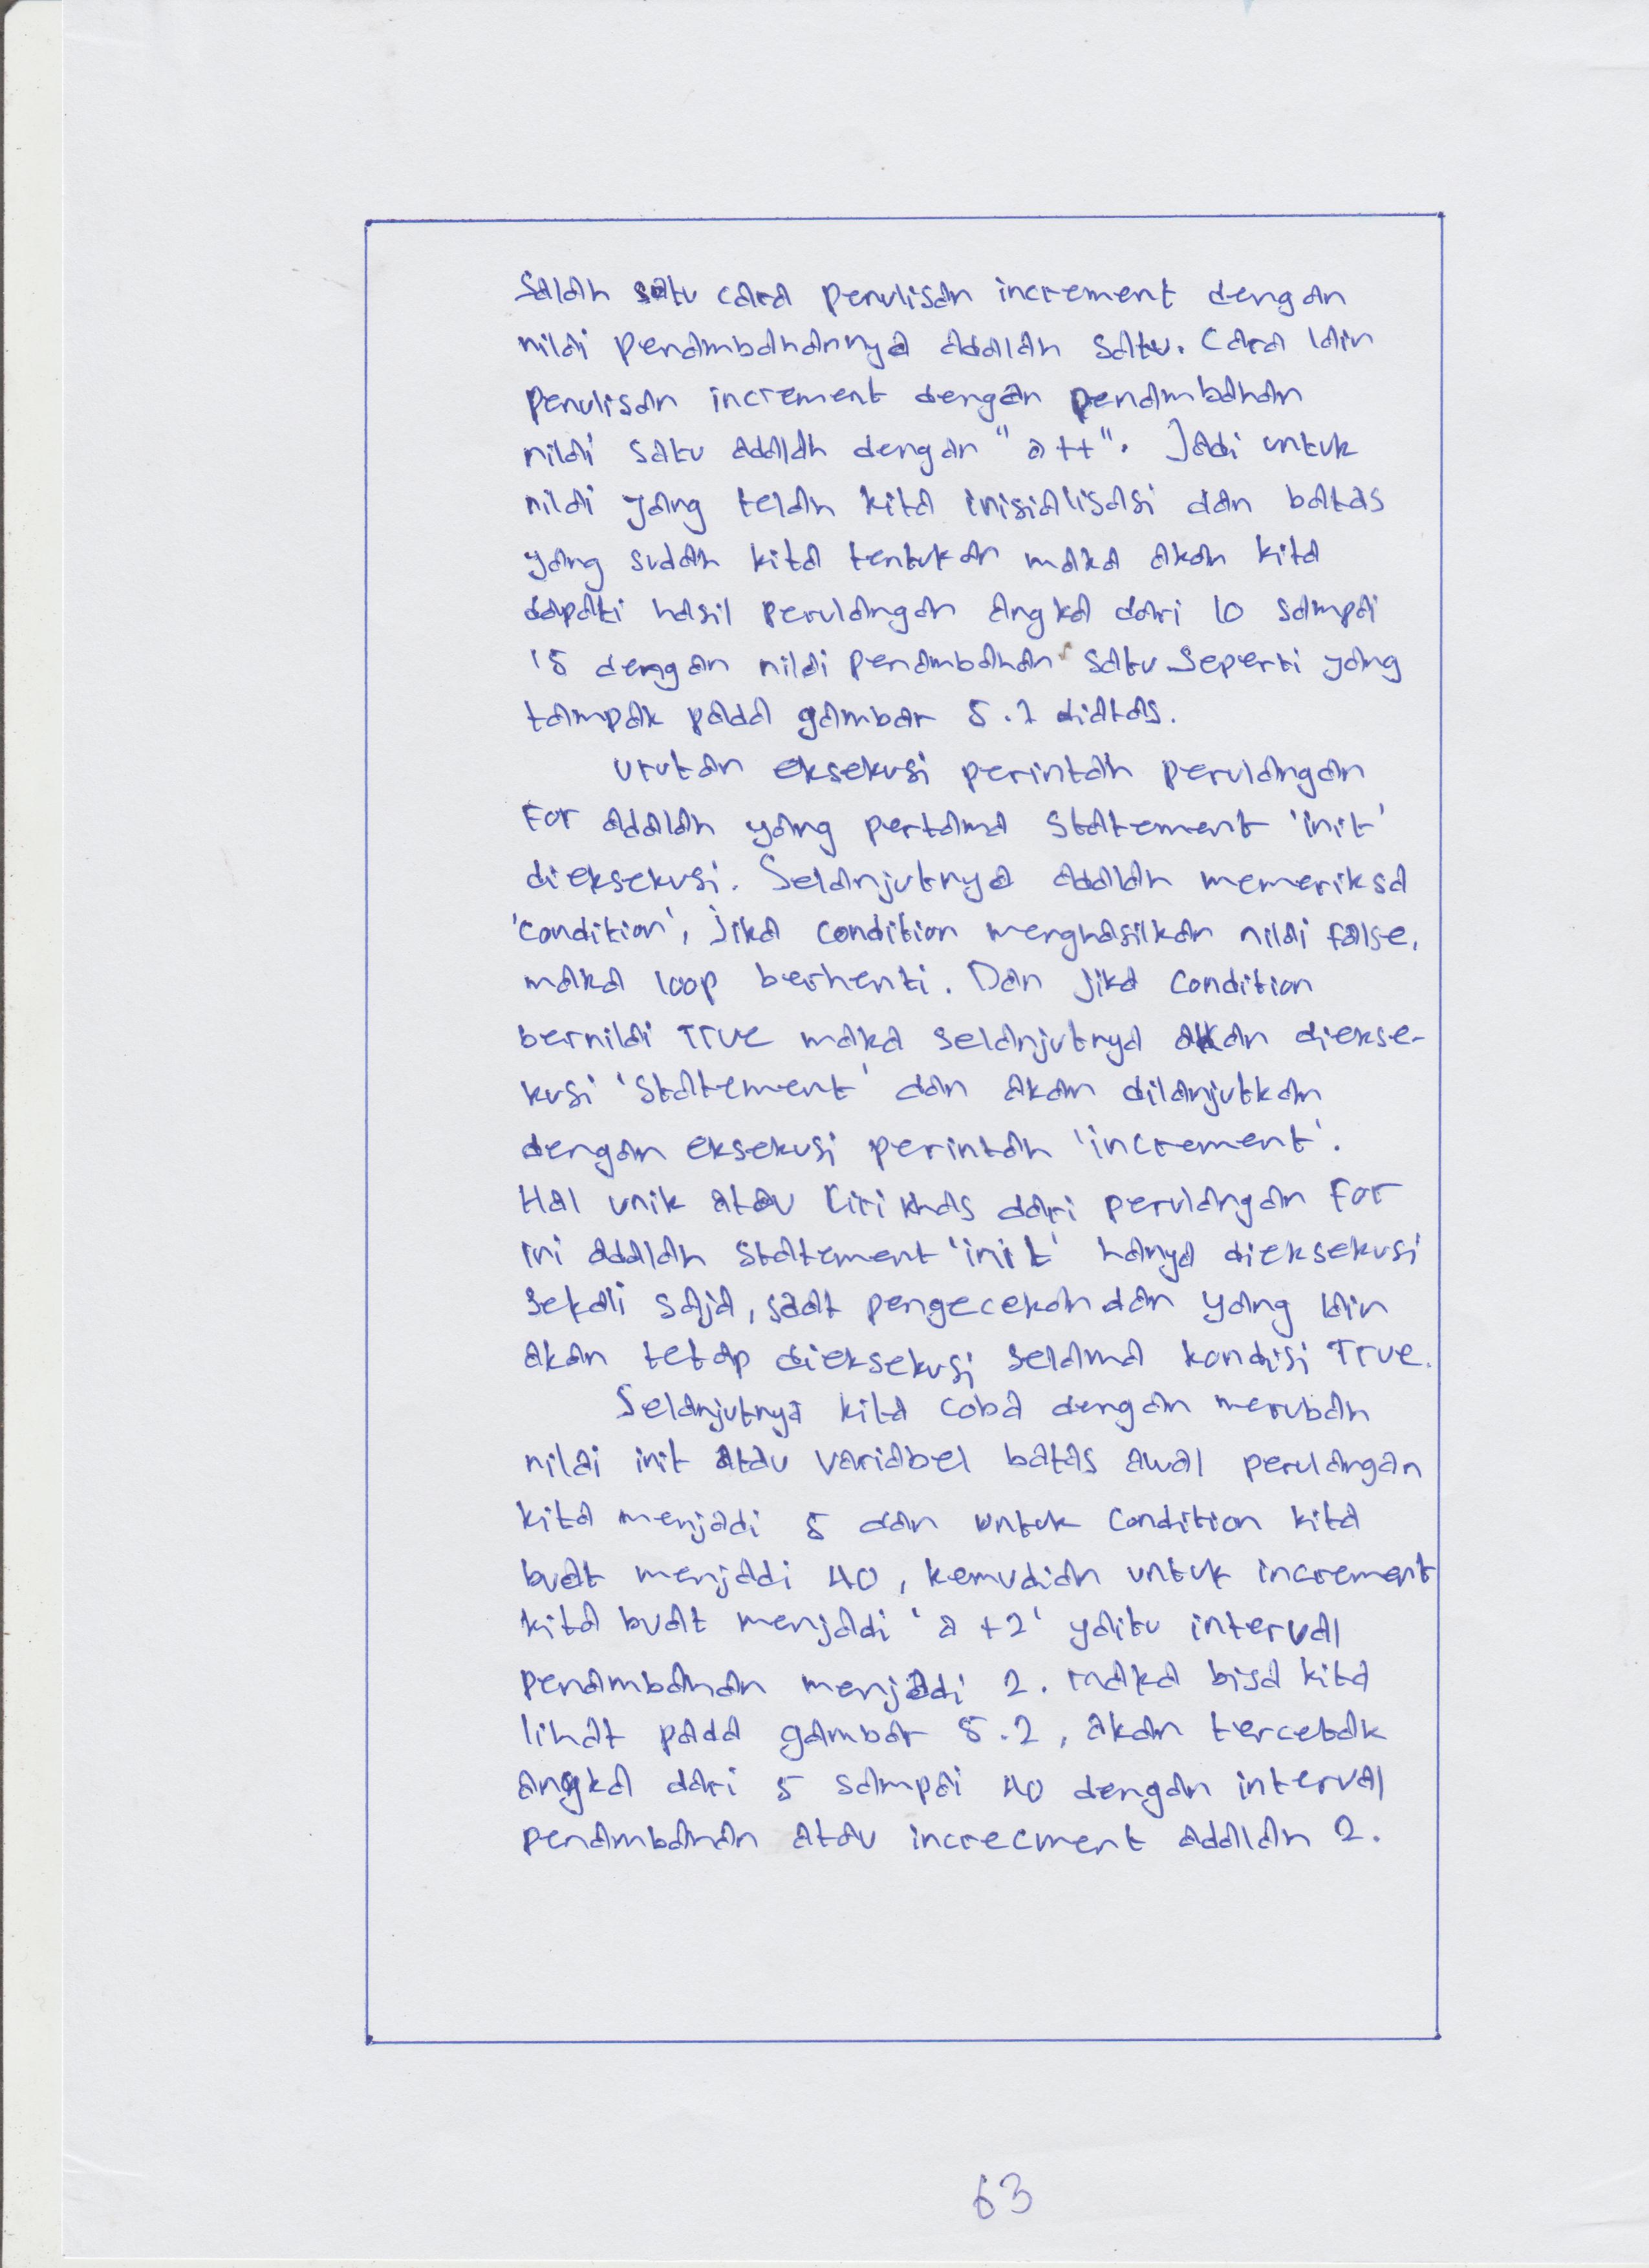 Salah satu cara penulisan increment dengan
nilai penambahannya adalah satu. Cara lain
penulisan increment dengan penambahan
nilai satu adalah dengan "a++". Jadi untuk
nilai yang telah kita inisialisasi dan batas
yang sudah kita tentukan maka akan kita
dapati hasil perulangan angka dari 10 sampai
15 dengan nilai penambahan satu seperti yang
tampak pada gambar 5.1 diatas.
Urutan eksekusi perintah perulangan
For adalah yang pertama statement 'init'
dieksekusi. Selanjutnya adalah memeriksa
'condition', jika condition menghasilkan nilai false,
maka loop berhenti. Dan jika condition
bernilai True maka selanjutnya akan diekse-
kusi 'statement' dan akan dilanjutkan
dengan eksekusi perintah 'increment'.
Hal unik atau ciri khas dari perulangan For
ini adalah statement 'init' hanya dieksekusi
sekali saja, saat pengecekan dan yang lain
akan tetap dieksekusi selama kondisi True.
Selanjutnya kita coba dengan merubah
nilai init atau variabel batas awal perulangan
kita menjadi 5 dan untuk condition kita
buat menjadi 40, kemudian untuk increment
kita buat menjadi 'a +2' yaitu interval
penambahan menjadi 2. maka bisa kita
lihat pada gambar 5.2, akan tercetak
angka dari 5 sampai 40 dengan interval
penambahan atau increcment adalah 2.
63